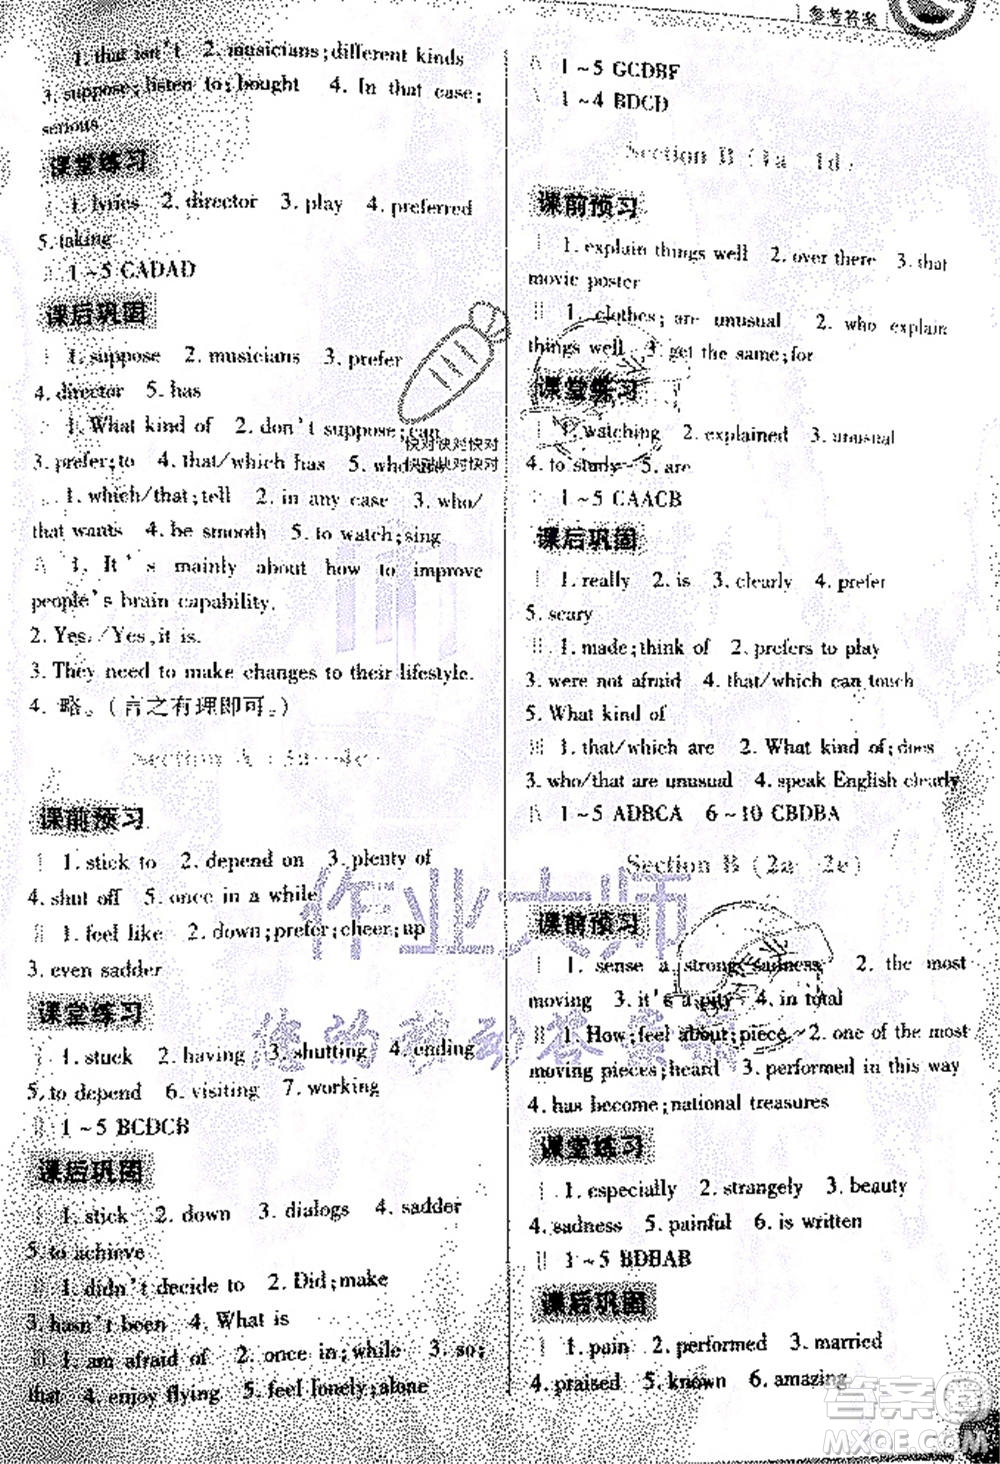 参考答案
1. that isn't 2. musicians;different kinds
3. suppose;listen to;bought 4. In that case;
serious
课堂练习
1. lyrics 2. director 3. play 4. preferred
5. taking
1~5 CADAD
课后巩固
1. suppose 2. musicians 3. prefer
4. director 5. has
1. What kind of 2. don't suppose;can
3. prefer;to 4. that/which has 5. who
1. which/that;tell 2. in any case 3. who/
that wants 4. be smooth 5. to watch;sing
1. It's mainly about how to improve
people's brain capability.
2. Yes. /Yes,it is.
3. They need to make changes to their lifestyle.
4. 略。(言之有理即可。)
Section A (3a-4c)
课前预习
1. stick to 2. depend on 3. plenty of
4. shut off 5. once in a while
1. feel like 2. down;prefer;cheer;up
3. even sadder
课堂练习
1. stuck 2. having 3. shutting 4. ending
5. to depend 6. visiting 7. working
1~5 BCDCB
课后巩固
1. stick 2. down 3. dialogs 4. sadder
5. to achieve
1. didn't decide to 2. Did;make
3. hasn't been 4. What is
1. am afraid of 2. once in;while 3. so;
that 4. enjoy flying 5. feel lonely;alone
1~5 GCDBF
1~4 BDCD
Section B (1a-1d)
课前预习
1. explain things well 2. over there 3. that
movie poster
1. clothes; are unusual 2. who explain
things well 3. get the same;for
课堂练习
1. watching 2. explained 3. unusual
4. to study 5. are
1~5 CAACB
课后巩固
1. really 2. is 3. clearly 4. prefer
5. scary
1. made;think of 2. prefers to play
3. were not afraid 4. that/which can touch
5. What kind of
1. that/which are 2. What kind of;does
3. who/that are unusual 4. speak English clearly
1~5 ADBCA 6~10 CBDBA
Section B (2a-2e)
课前预习
1. sense a strong sadness 2. the most
moving 3. it's a pity 4. in total
1. How;feel about;piece 2. one of the most
moving pieces;heard 3. performed in this way
4. has become;national treasures
课堂练习
1. especially 2. strangely 3. beauty
4. sadness 5. painful 6. is written
1~5 BDBAB
课后巩固
1. pain 2. performed 3. married
4. praised 5. known 6. amazing
快对快对快对
快对快对快对
作业大师
您的移动答案
答案圈
MXQE.COM